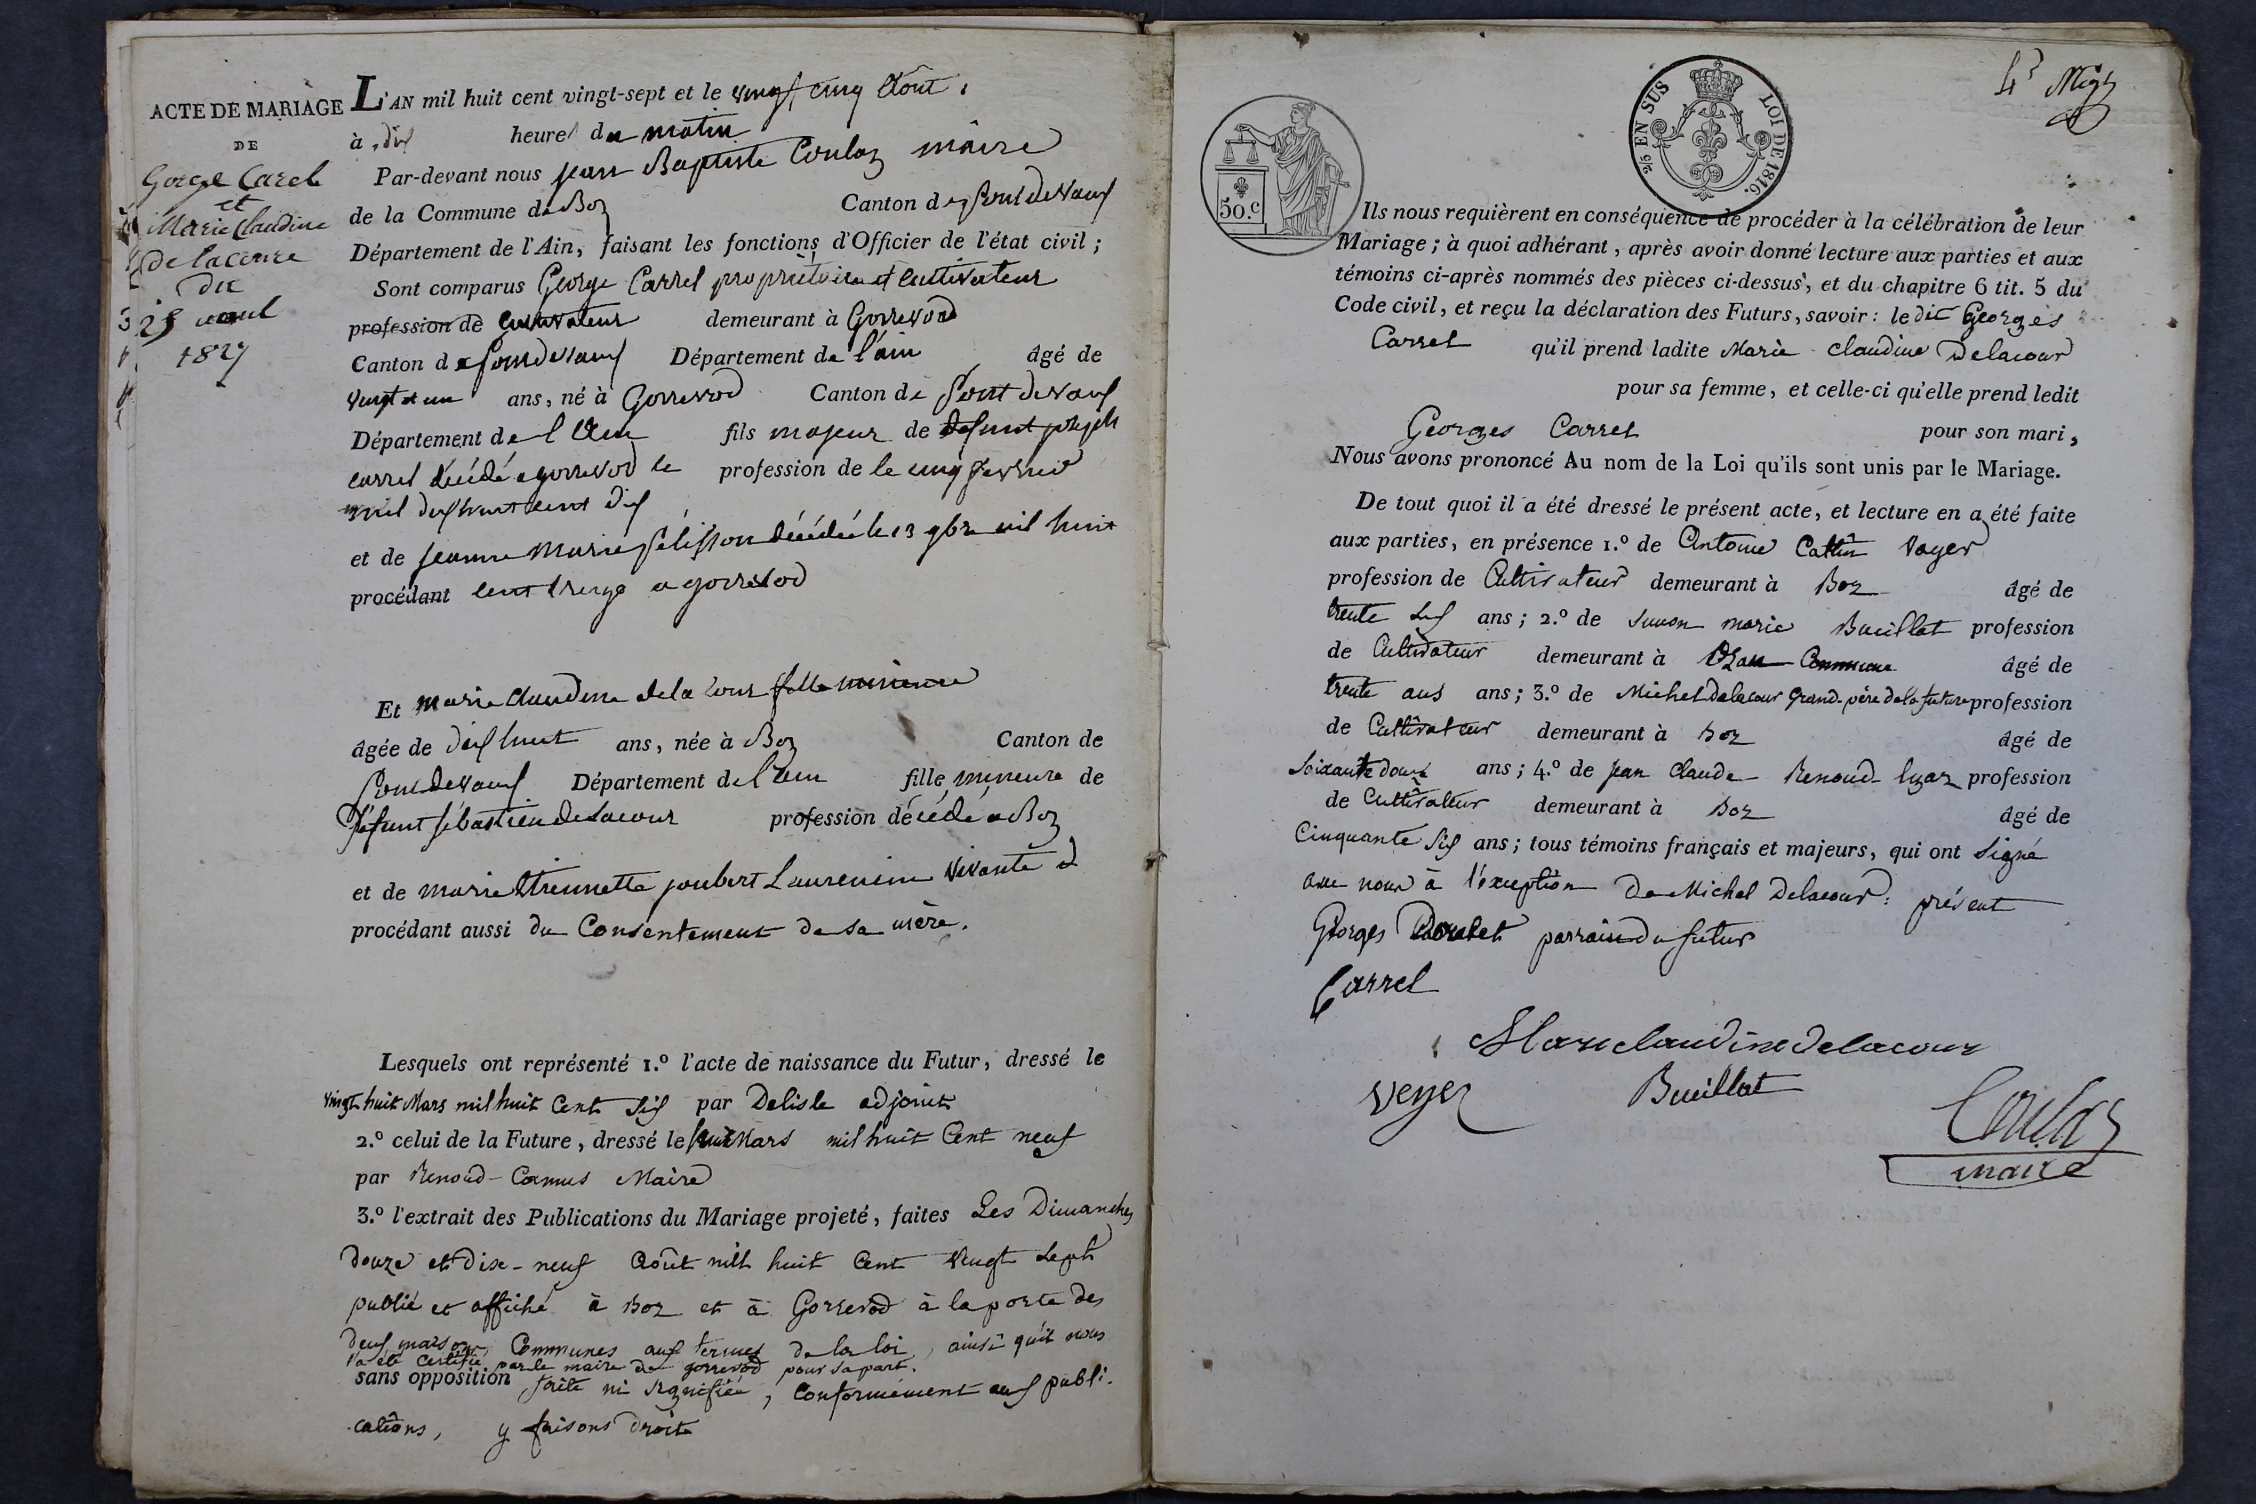 ACTE DE MARIAGE
DE
George Carel
et
Marie Claudine
de lacoure
du
25 aoul
1827
L'AN mil huit cent vingt-sept et le vingt cinq Aôut.
à dix heures du matin
Par-devant nous jean Baptiste Coulaz maire
de la Commune de Boz Canton de Pont de Vaux
Département de l'Ain, faisant les fonctions d'Officier de l'état civil ;
Sont comparus George Carrel propriétaire et Cultivateur
profession de Cultivateur demeurant à Gorrevod
Canton de Pont de Vaux Département de l'ain âgé de
vingt et un ans, né à Gorrevod Canton de Pont de vaux
Département de l'Ain fils majeur de defunt joseph
carrel décédé a gorrevod le profession de le cinq fevrier
mil dix huit cent dix
et de jeanne Marie pélisson décédée le 13 9bre mil huit
procédant cent treize a gorrevod
Et marie Claudine de la Cour fille mineure
âgée de dix huit ans, née à Boz Canton de
Pont de Vaux Département de l'Ain fille mineure de
défunt sébastien de Lacour profession décédé a Boz
et de marie Etiennette joubert Laurencin vivante et
procédant aussi du Consentement de sa mère.
Lesquels ont représenté 1.º l'acte de naissance du Futur, dressé le
vingt huit Mars mil huit Cent six par Delisle adjoint
2.º celui de la Future, dressé le huit Mars mil huit Cent neuf
par Renoud-Camus Maire
3.º l'extrait des Publications du Mariage projeté, faites Les Dimanches
Douze et Dix-neuf Août mil huit Cent vingt sept
publié et affiché à Boz et à Gorrevod à la porte des
deux maisons Communes aux termes de la loi, ainsi qu'il nous
l'a été certifié par le maire de gorrevod pour sa part.
sans opposition faite ni signifiée, Conformément aux publi-
-cations, y faisons droit
4e Mge
50.c
25 EN SUS LOI DE 1816.
Ils nous requièrent en conséquence de procéder à la célébration de leur
Mariage ; à quoi adhérant, après avoir donné lecture aux parties et aux
témoins ci-après nommés des pièces ci-dessus, et du chapitre 6 tit. 5 du
Code civil, et reçu la déclaration des Futurs, savoir : ledit Georges
Carrel qu'il prend ladite Marie Claudine Delacour
pour sa femme, et celle-ci qu'elle prend ledit
Georges Carrel pour son mari,
Nous avons prononcé Au nom de la Loi qu'ils sont unis par le Mariage.
De tout quoi il a été dressé le présent acte, et lecture en a été faite
aux parties, en présence 1.º de Antoine Catin Vayer
profession de Cultivateur demeurant à Boz âgé de
trente six ans ; 2.º de Simon marie Buillat profession
de Cultivateur demeurant à Ozan Commune âgé de
trente ans ans ; 3.º de Michel Delacour Grand-père de la future profession
de Cultivateur demeurant à Boz âgé de
Soixante douze ans ; 4.º de Jean Claude Renoud-lyaz profession
de Cultivateur demeurant à Boz âgé de
Cinquante six ans ; tous témoins français et majeurs, qui ont signé
avec nous à l'exception de Michel Delacour : présent
Georges parrain du futur
Carrel
Marie claudine delacour
Veyer Buillat
Coulaz
maire